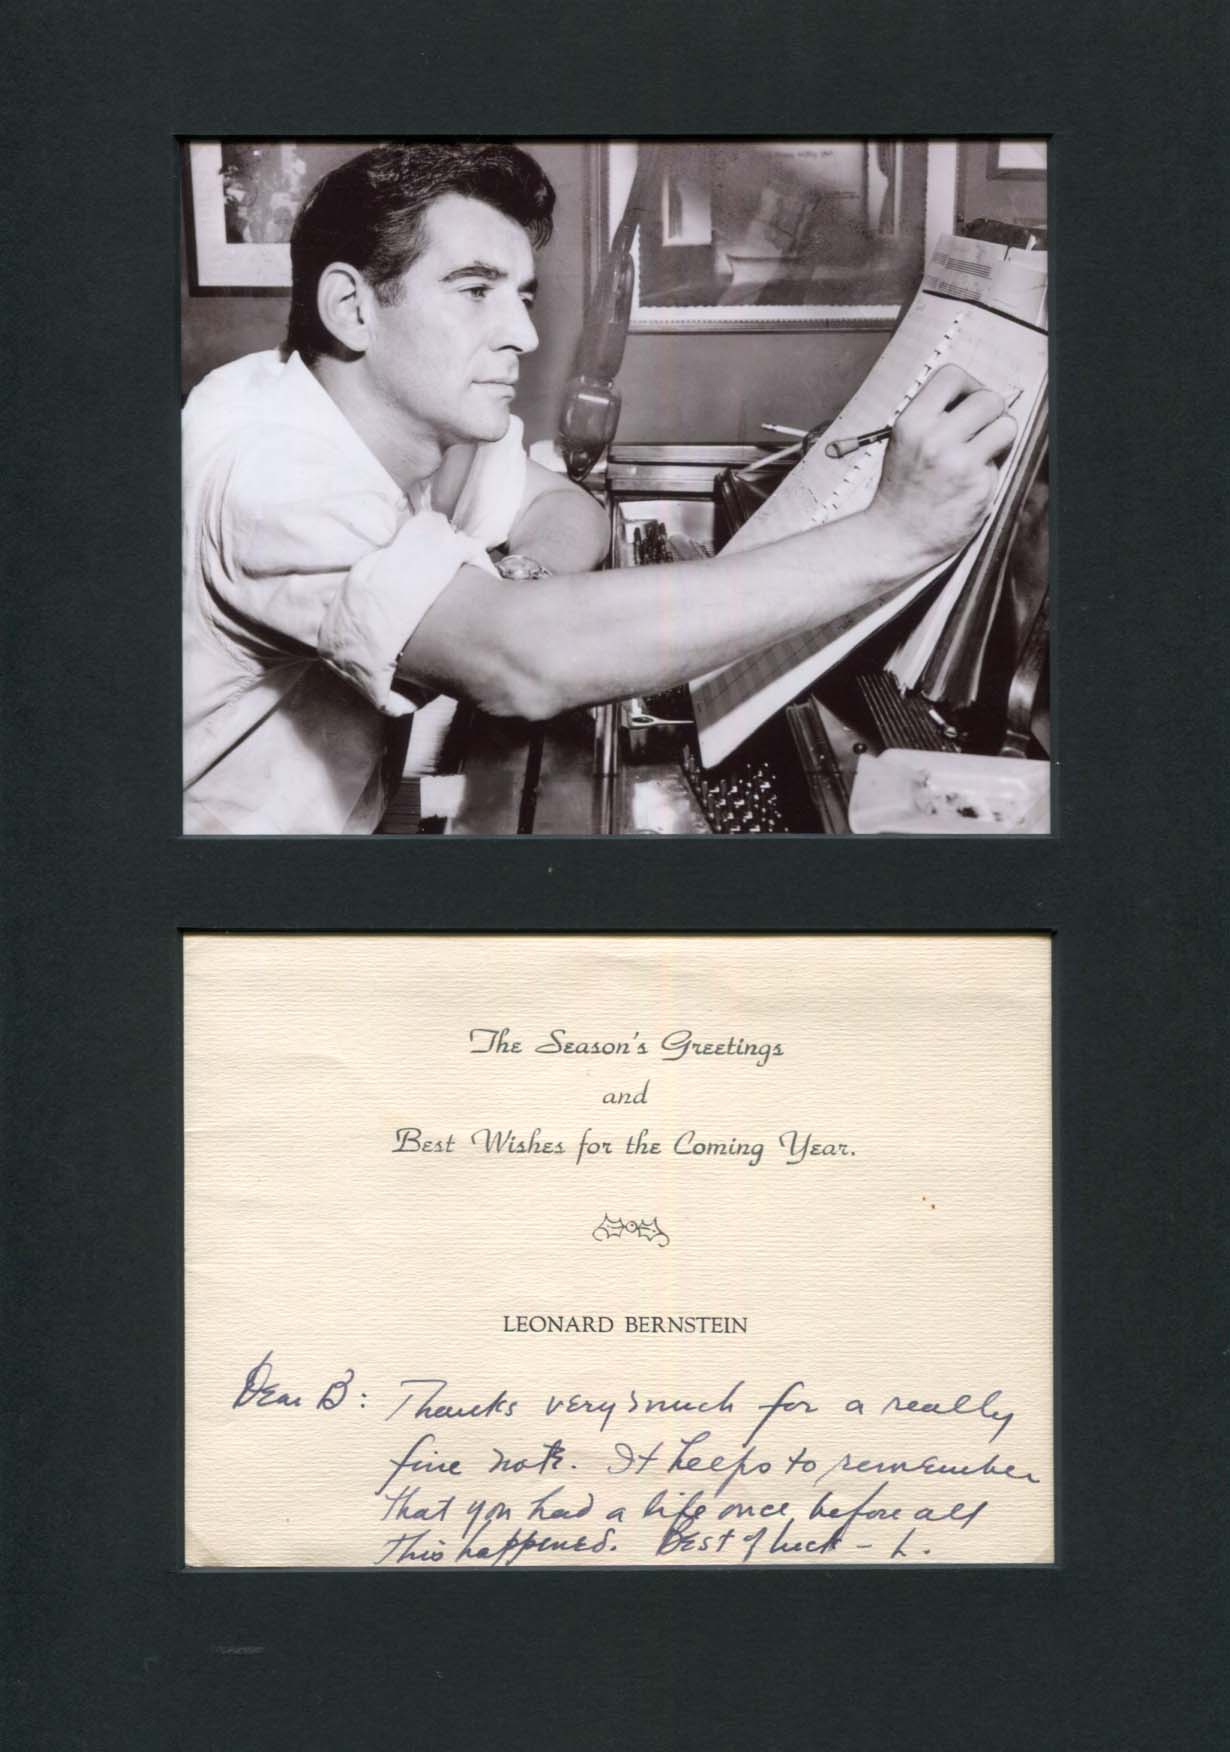 The Season's Greetings
and
Best Wishes for the Coming Year.
LEONARD BERNSTEIN
Dear B: Thanks very much for a really
fine note. It helps to remember
that you had a life once, before all
this happened. Best of luck – L.